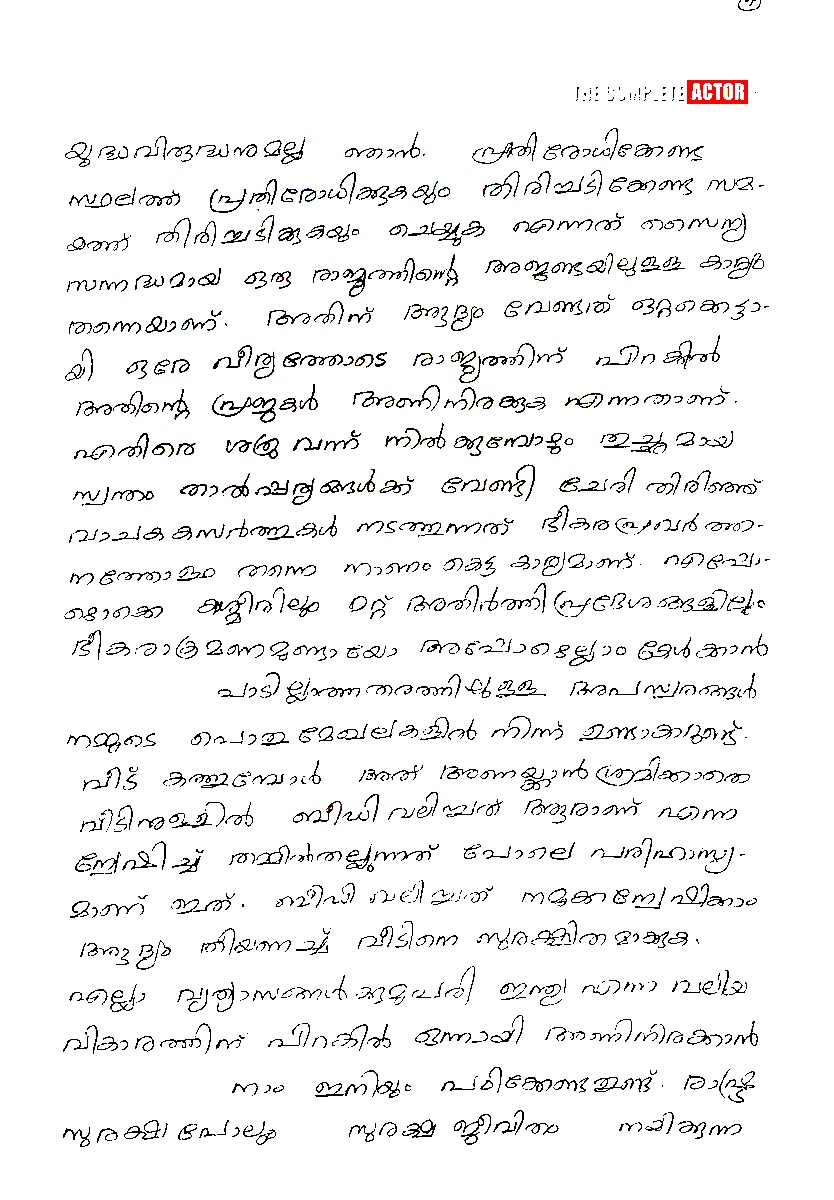 THE COMPLETE ACTOR
യുദ്ധവിരുദ്ധനുമല്ല ഞാൻ. പ്രതിരോധിക്കേണ്ട
സ്ഥലത്ത് പ്രതിരോധിക്കുകയും തിരിച്ചടിക്കേണ്ട സമ-
യത്ത് തിരിച്ചടിക്കുകയും ചെയ്യുക എന്നത് സൈന്യ
സന്നദ്ധമായ ഒരു രാജ്യത്തിന്റെ അജണ്ടയിലുള്ള കാര്യം
തന്നെയാണ്. അതിന് ആദ്യം വേണ്ടത് ഒറ്റക്കെട്ടാ-
യി ഒരേ വീര്യത്തോടെ രാജ്യത്തിന് പിറകിൽ
അതിന്റെ പ്രജകൾ അണിനിരക്കുക എന്നതാണ്.
എതിരെ ശത്രു വന്ന് നിൽക്കുമ്പോളും തുച്ഛമായ
സ്വന്തം താൽപ്പര്യങ്ങൾക്ക് വേണ്ടി ചേരി തിരിഞ്ഞ്
വാചകകസർത്തുകൾ നടത്തുന്നത് ഭീകരപ്രവർത്ത-
നത്തോളം തന്നെ നാണം കെട്ട കാര്യമാണ്. എപ്പോ-
ഴൊക്കെ കശ്മീരിലും മറ്റ് അതിർത്തി പ്രദേശങ്ങളിലും
ഭീകരാക്രമണമുണ്ടായോ അപ്പോഴെല്ലാം കേൾക്കാൻ
പാടില്ലാത്തതരത്തിലുള്ള അപസ്വരങ്ങൾ
നമ്മുടെ പൊതുമേഖലകളിൽ നിന്ന് ഉണ്ടാകാറുണ്ട്.
വീട് കത്തുമ്പോൾ അത് അണയ്ക്കാൻ ശ്രമിക്കാതെ
വീടിനുള്ളിൽ ബീഡി വലിച്ചത് ആരാണ് എന്ന
ന്വേഷിച്ച് തമ്മിൽതല്ലുന്നത് പോലെ പരിഹാസ്യ-
മാണ് ഇത്. ബീഡി വലിച്ചത് നമുക്കന്വേഷിക്കാം
ആദ്യം തീയണച്ച് വീടിനെ സുരക്ഷിതമാക്കുക.
എല്ലാ വ്യത്യാസങ്ങൾക്കുമുപരി ഇന്ത്യ എന്ന വലിയ
വികാരത്തിന് പിറകിൽ ഒന്നായി അണിനിരക്കാൻ
നാം ഇനിയും പഠിക്കേണ്ടതുണ്ട്. രാഷ്ട്ര
സുരക്ഷ പോലും സുരക്ഷ ജീവിതം നയിക്കുന്ന